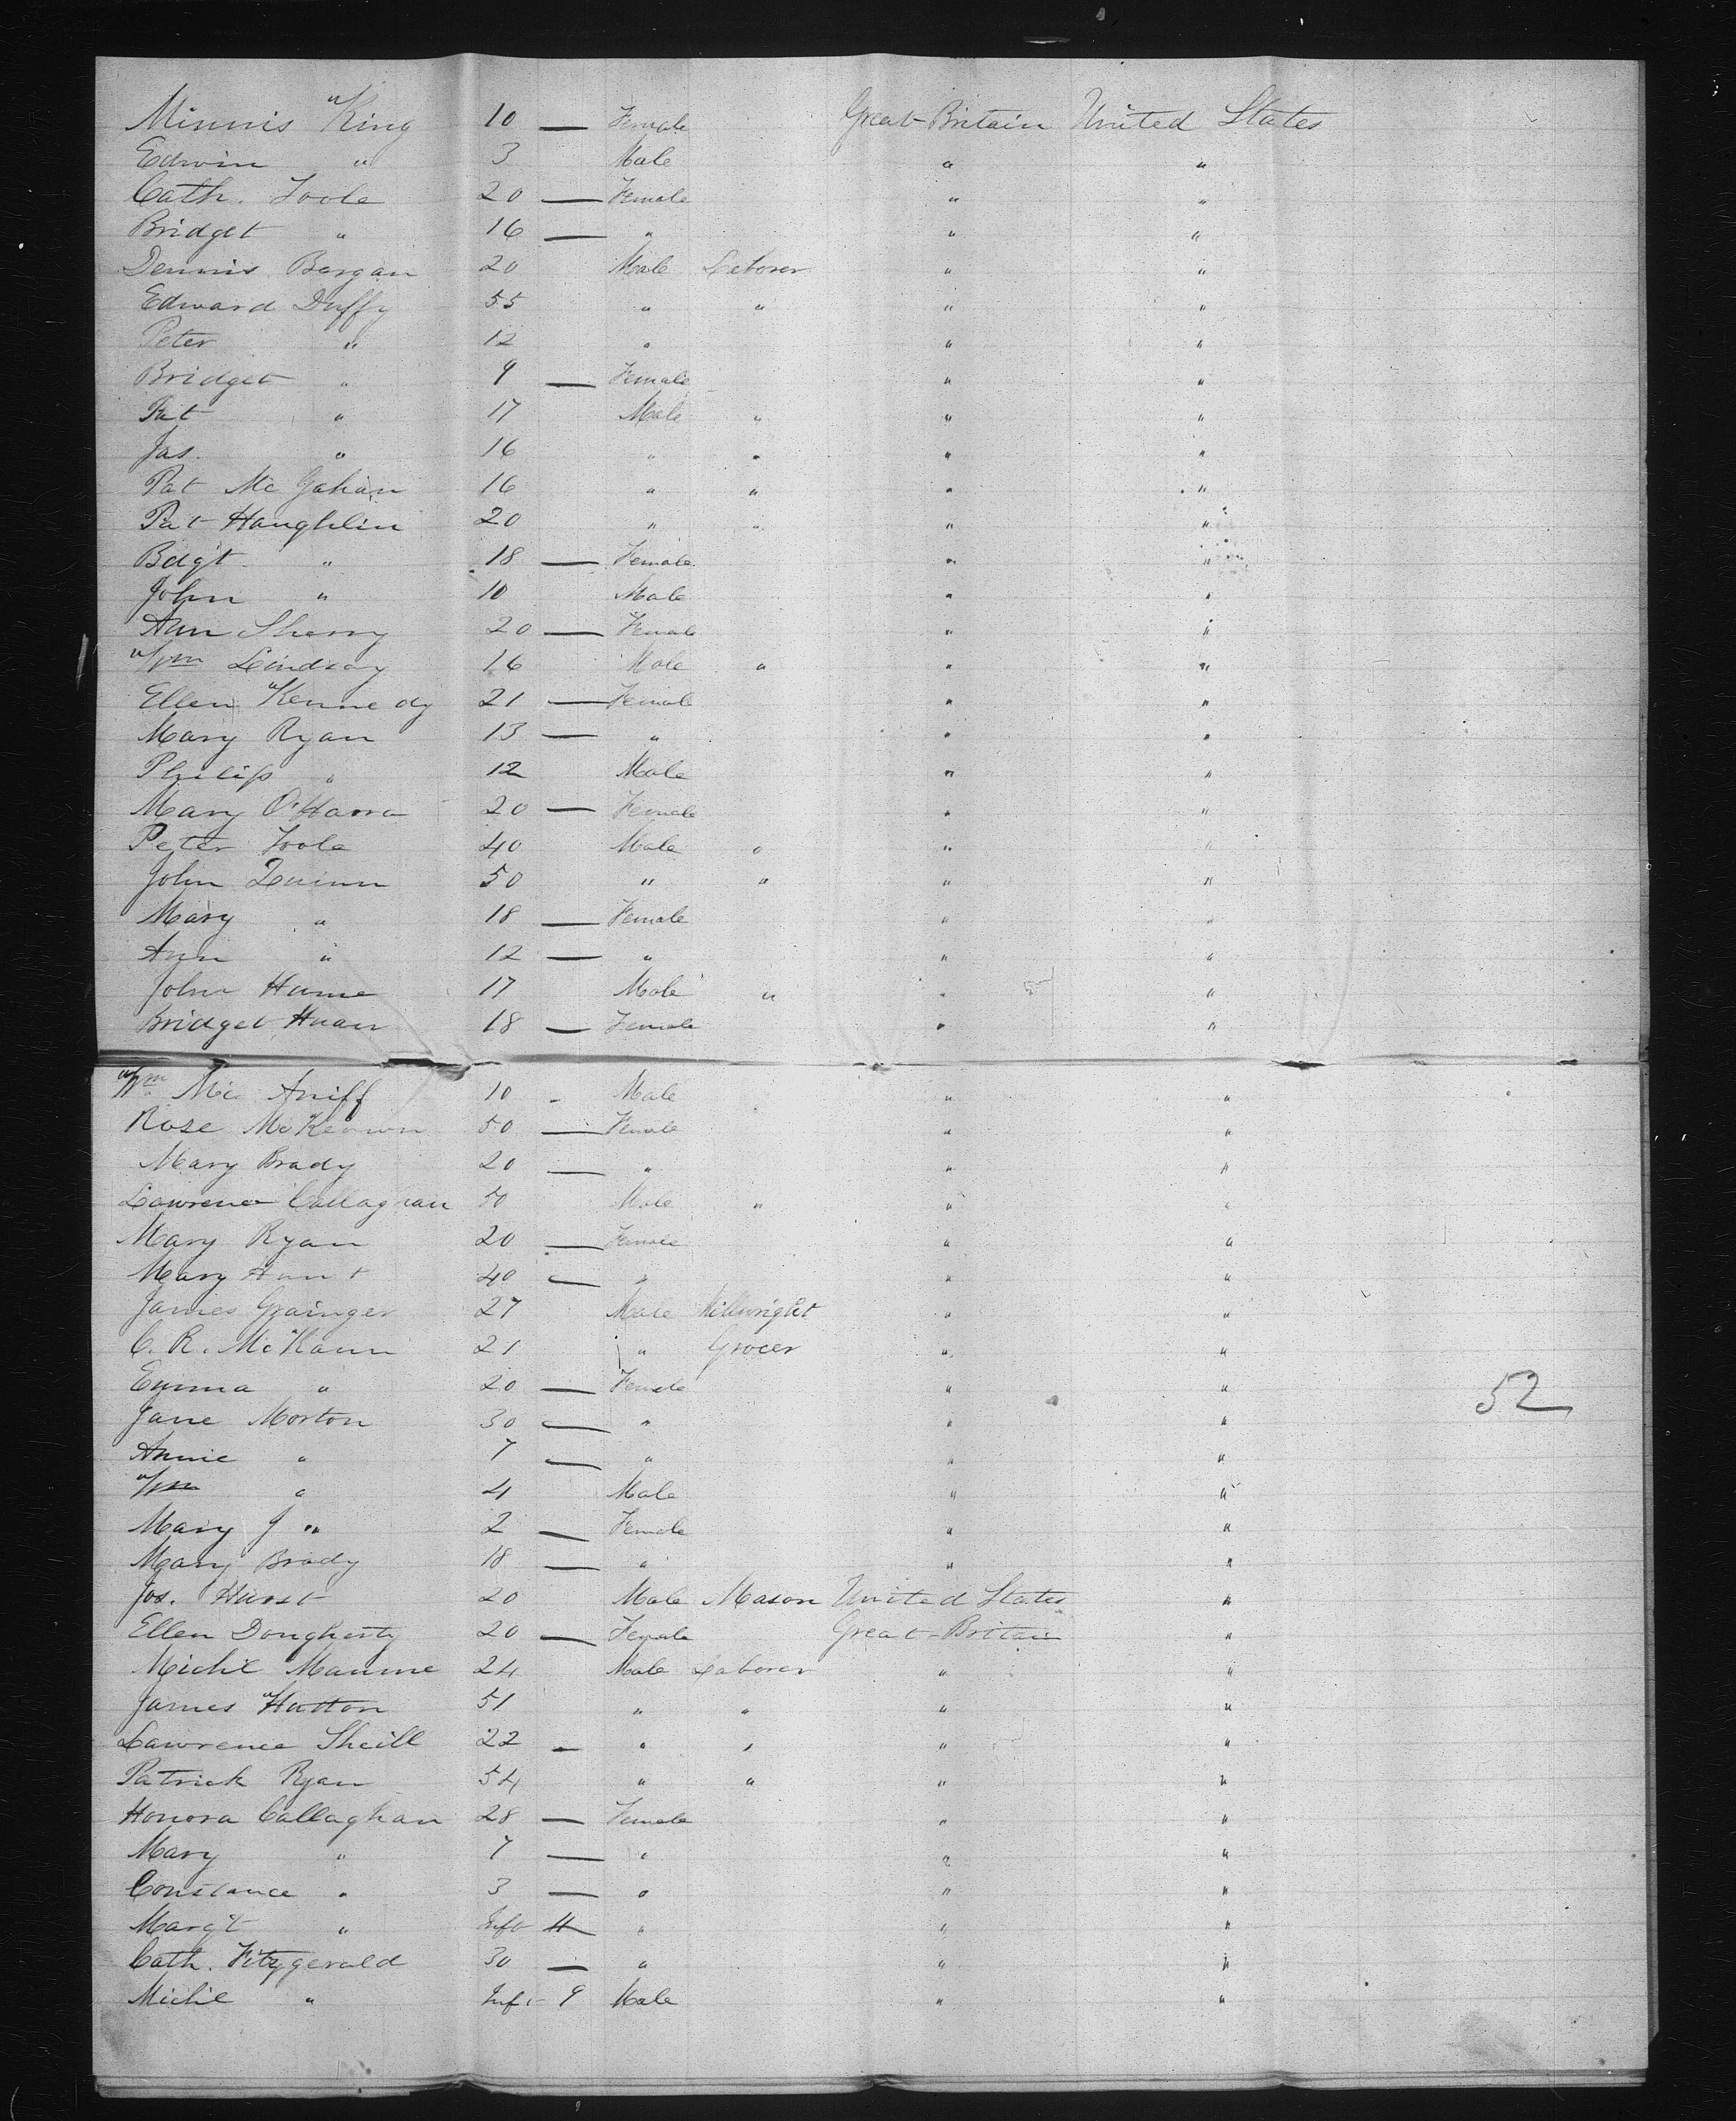 Minnis King 10 — Female Great Britain United States
Edwin " 3 Male " "
Cath. Toole 20 — Female " "
Bridget " 16 — " " "
Dennis Bergan 20 Male Laborer " "
Edward Duffy 55 " " " "
Peter " 12 " " "
Bridget " 9 — Female " "
Pat " 17 Male " " "
Jas. " 16 " " " "
Pat Mc Gahan 16 " " " "
Pat Haughlin 20 " " " "
Bdgt " 18 — Female " "
John " 10 Male " "
Ann Sherry 20 — Female " "
Wm Lindsay 16 Male " " "
Ellen Kennedy 21 — Female " "
Mary Ryan 13 — " " "
Philip " 12 Male " "
Mary O'Harra 20 — Female " "
Peter Toole 40 Male " " "
John Quinn 50 " " " "
Mary " 18 — Female " "
Ann " 12 — " " "
John Hume 17 Male " " "
Bridget Huan 18 — Female " "
Wm Mc Aniff 10 - Male " "
Rose McKeown 50 — Female " "
Mary Brady 20 — " " "
Lawrence Callaghan 50 Male " " "
Mary Ryan 20 — Female " "
Mary Hunt 40 — " " "
James Grainger 27 Male Millwright " "
C. R. McKann 21 " Grocer " "
Emma " 20 — Female " "
52
Jane Morton 30 — " " "
Annie " 7 — " " "
Wm " 4 Male " "
Mary J " 2 — Female " "
Mary Brady 18 — " " "
Jos. Hurst 20 Male Mason United States "
Ellen Dougherty 20 — Female Great Britain "
Michl Manme 24 Male Laborer " "
James Hutton 51 " " " "
Lawrence Sheill 22 - " " " "
Patrick Ryan 54 " " " "
Honora Callaghan 28 — Female " "
Mary " 7 — " " "
Constance " 3 — " " "
Margt " Inft " " "
Cath. Fitzgerald 30 — " " "
Michl " Inft 9 Male " "